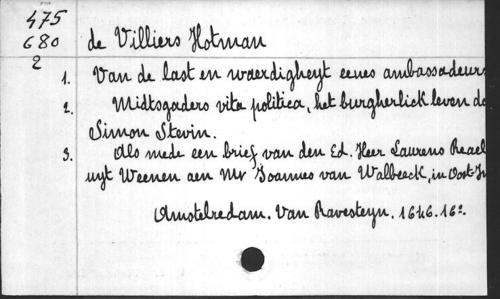 475
680
2
de Villiers Hotman
1. Van de last en waerdigheyt eenes ambassadeurs
2. Midtsgaders vita politica, het burgherlick leven do
Simon Stevin.
3. Als mede een brief van den Ed. Heer Laurens Reael
uyt Weenen aen Mr Joannes van Walbeeck, in Oost-In
Amstelredam. Van Ravesteyn. 1646. 16º.